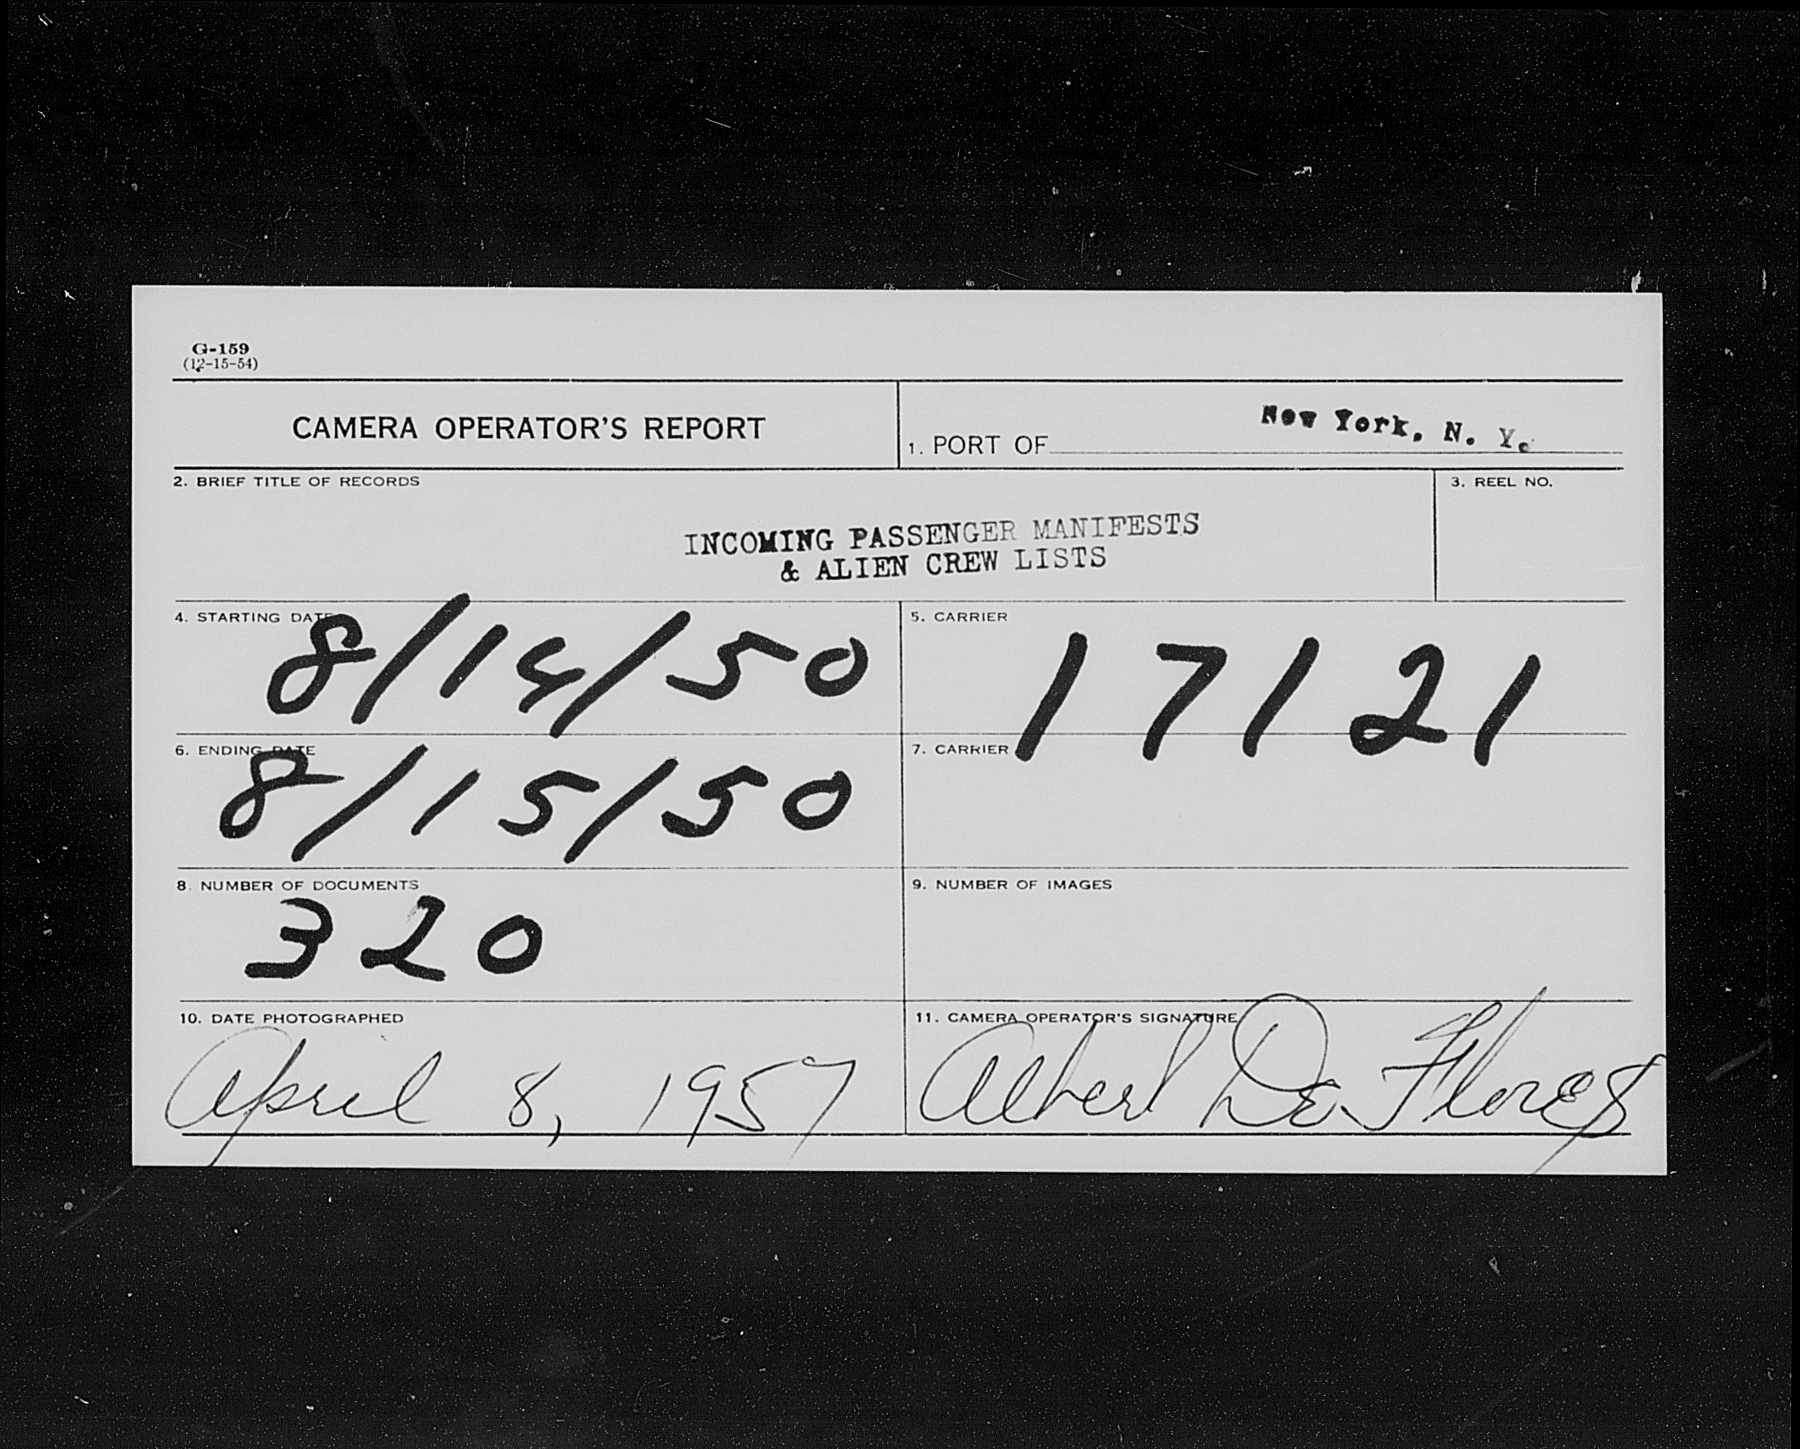 G-159
(12-15-54)
CAMERA OPERATOR'S REPORT
1. PORT OF New York, N. Y.
2. BRIEF TITLE OF RECORDS
INCOMING PASSENGER MANIFESTS
& ALIEN CREW LISTS
3. REEL NO.
4. STARTING DATE
8/14/50
5. CARRIER
17121
6. ENDING DATE
8/15/50
7. CARRIER
8. NUMBER OF DOCUMENTS
320
9. NUMBER OF IMAGES
10. DATE PHOTOGRAPHED
April 8, 1957
11. CAMERA OPERATOR'S SIGNATURE
Albert De Flores